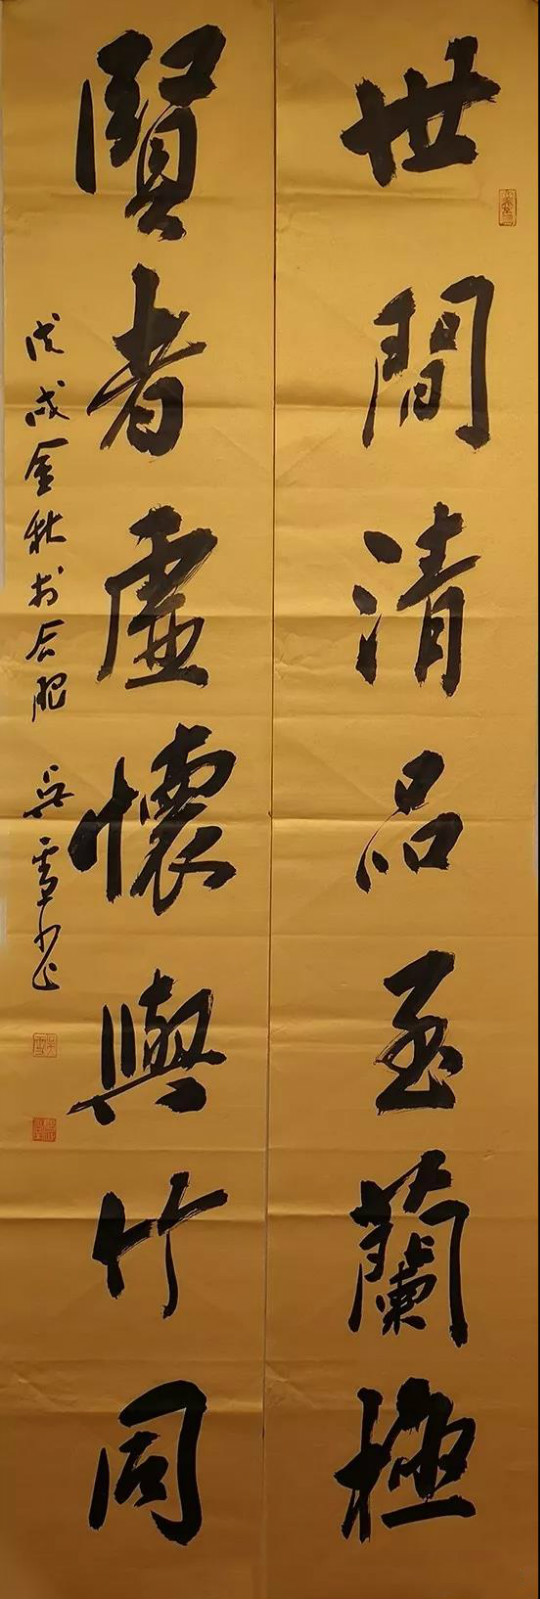 世間清品至蘭極
賢者虛懷與竹同
戊戌金秋於合肥 吳雪